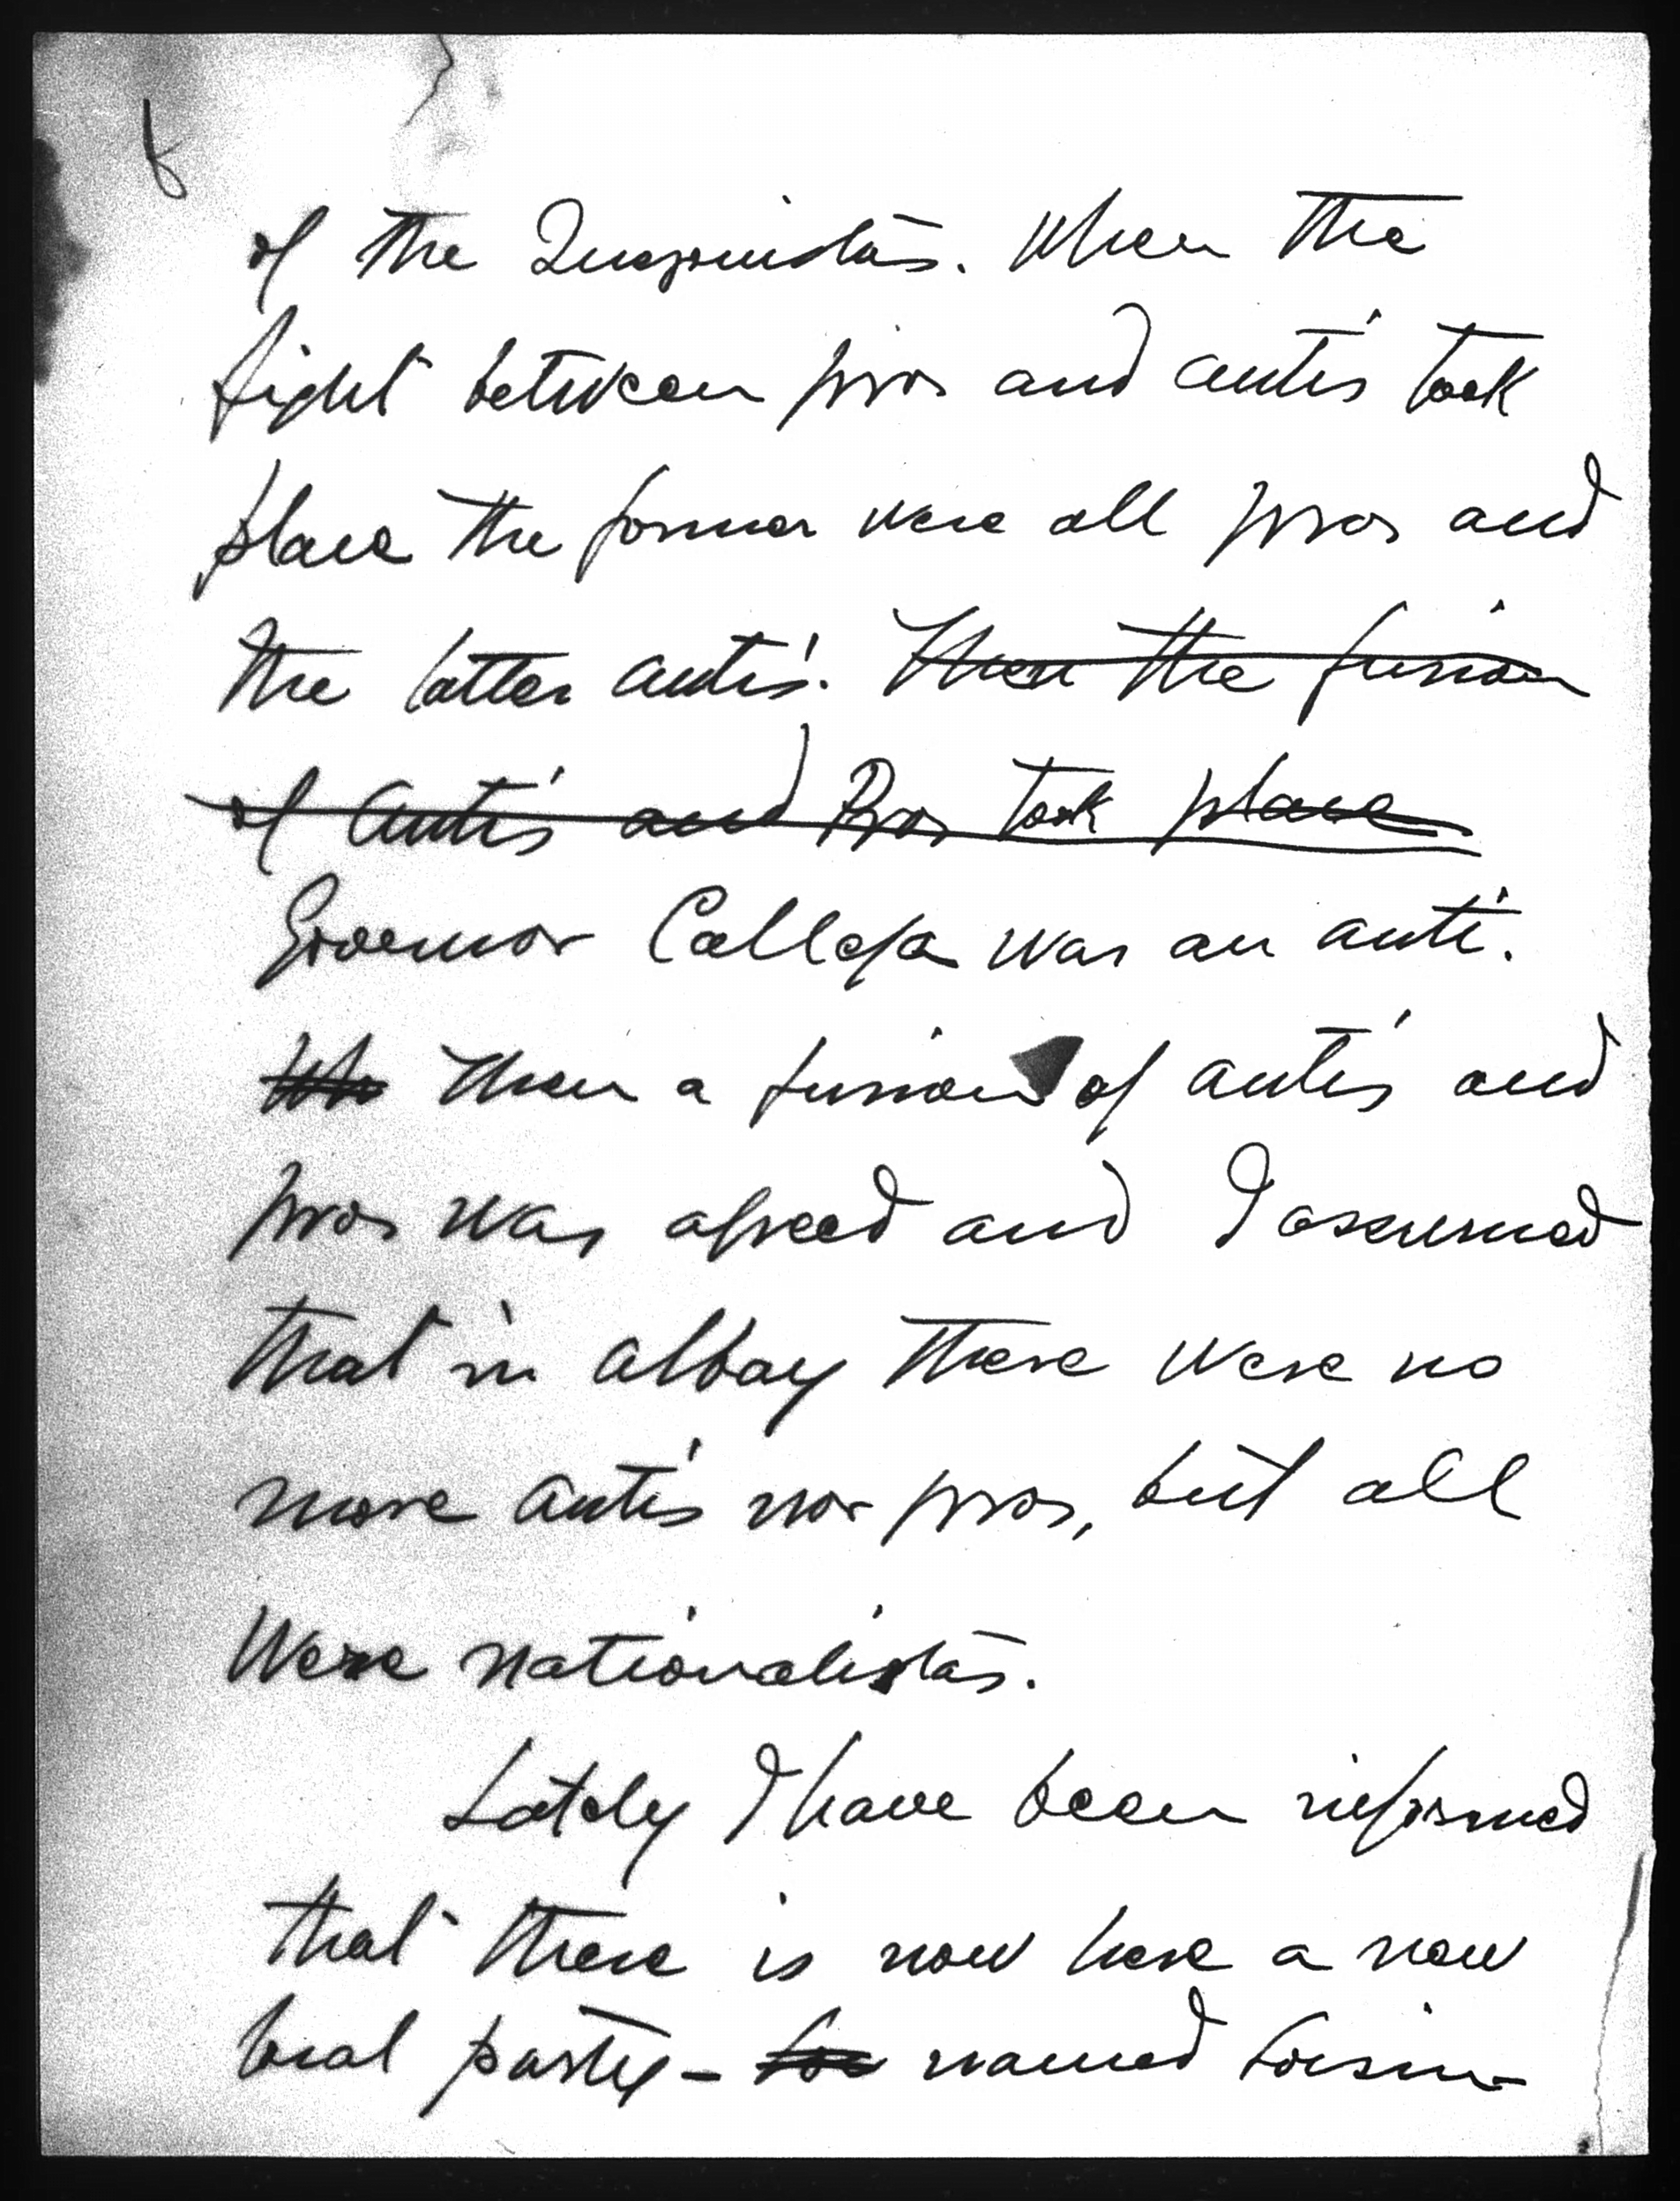 6
of the Quezonistas. When the
fight between pros and antis took
place the former were all pros and
the latter antis. Then the fusion
of Antis and Pros took place
Governor Calleja was an anti.
Then a fusion of antis and
pros was agreed and I assumed
that in Albay there were no
more antis nor pros, but all
were nationalistas.
Lately I have been informed
that there is now here a new
local party - named